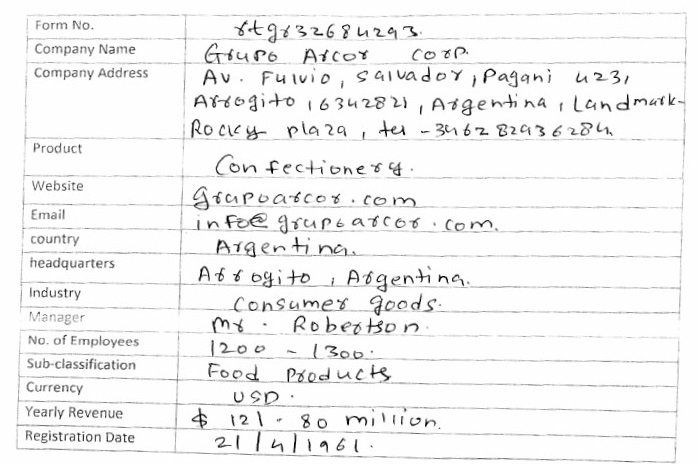 Form No. rtgr32684293.
Company Name Grupo Arcor corp.
Company Address Av. Fulvio, Salvador, Pagani 423,
Arrogito 16342821, Argentina, Landmark-
Rocky plaza, tel - 34628293628
Product Confectionery.
Website grupoarcor.com
Email info@grupoarcor.com.
country Argentina.
headquarters Arrogito, Argentina.
Industry Consumer goods.
Manager Mr. Robertson.
No. of Employees 1200 - 1300.
Sub-classification Food Products
Currency USD.
Yearly Revenue $ 121.80 million.
Registration Date 21/4/1961.